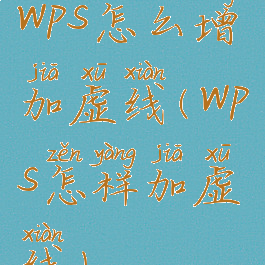 WPS怎么增
jiā xū xiàn
加虚线(WP
zěn yàng jiā xū
S怎样加虚
xiàn
线)